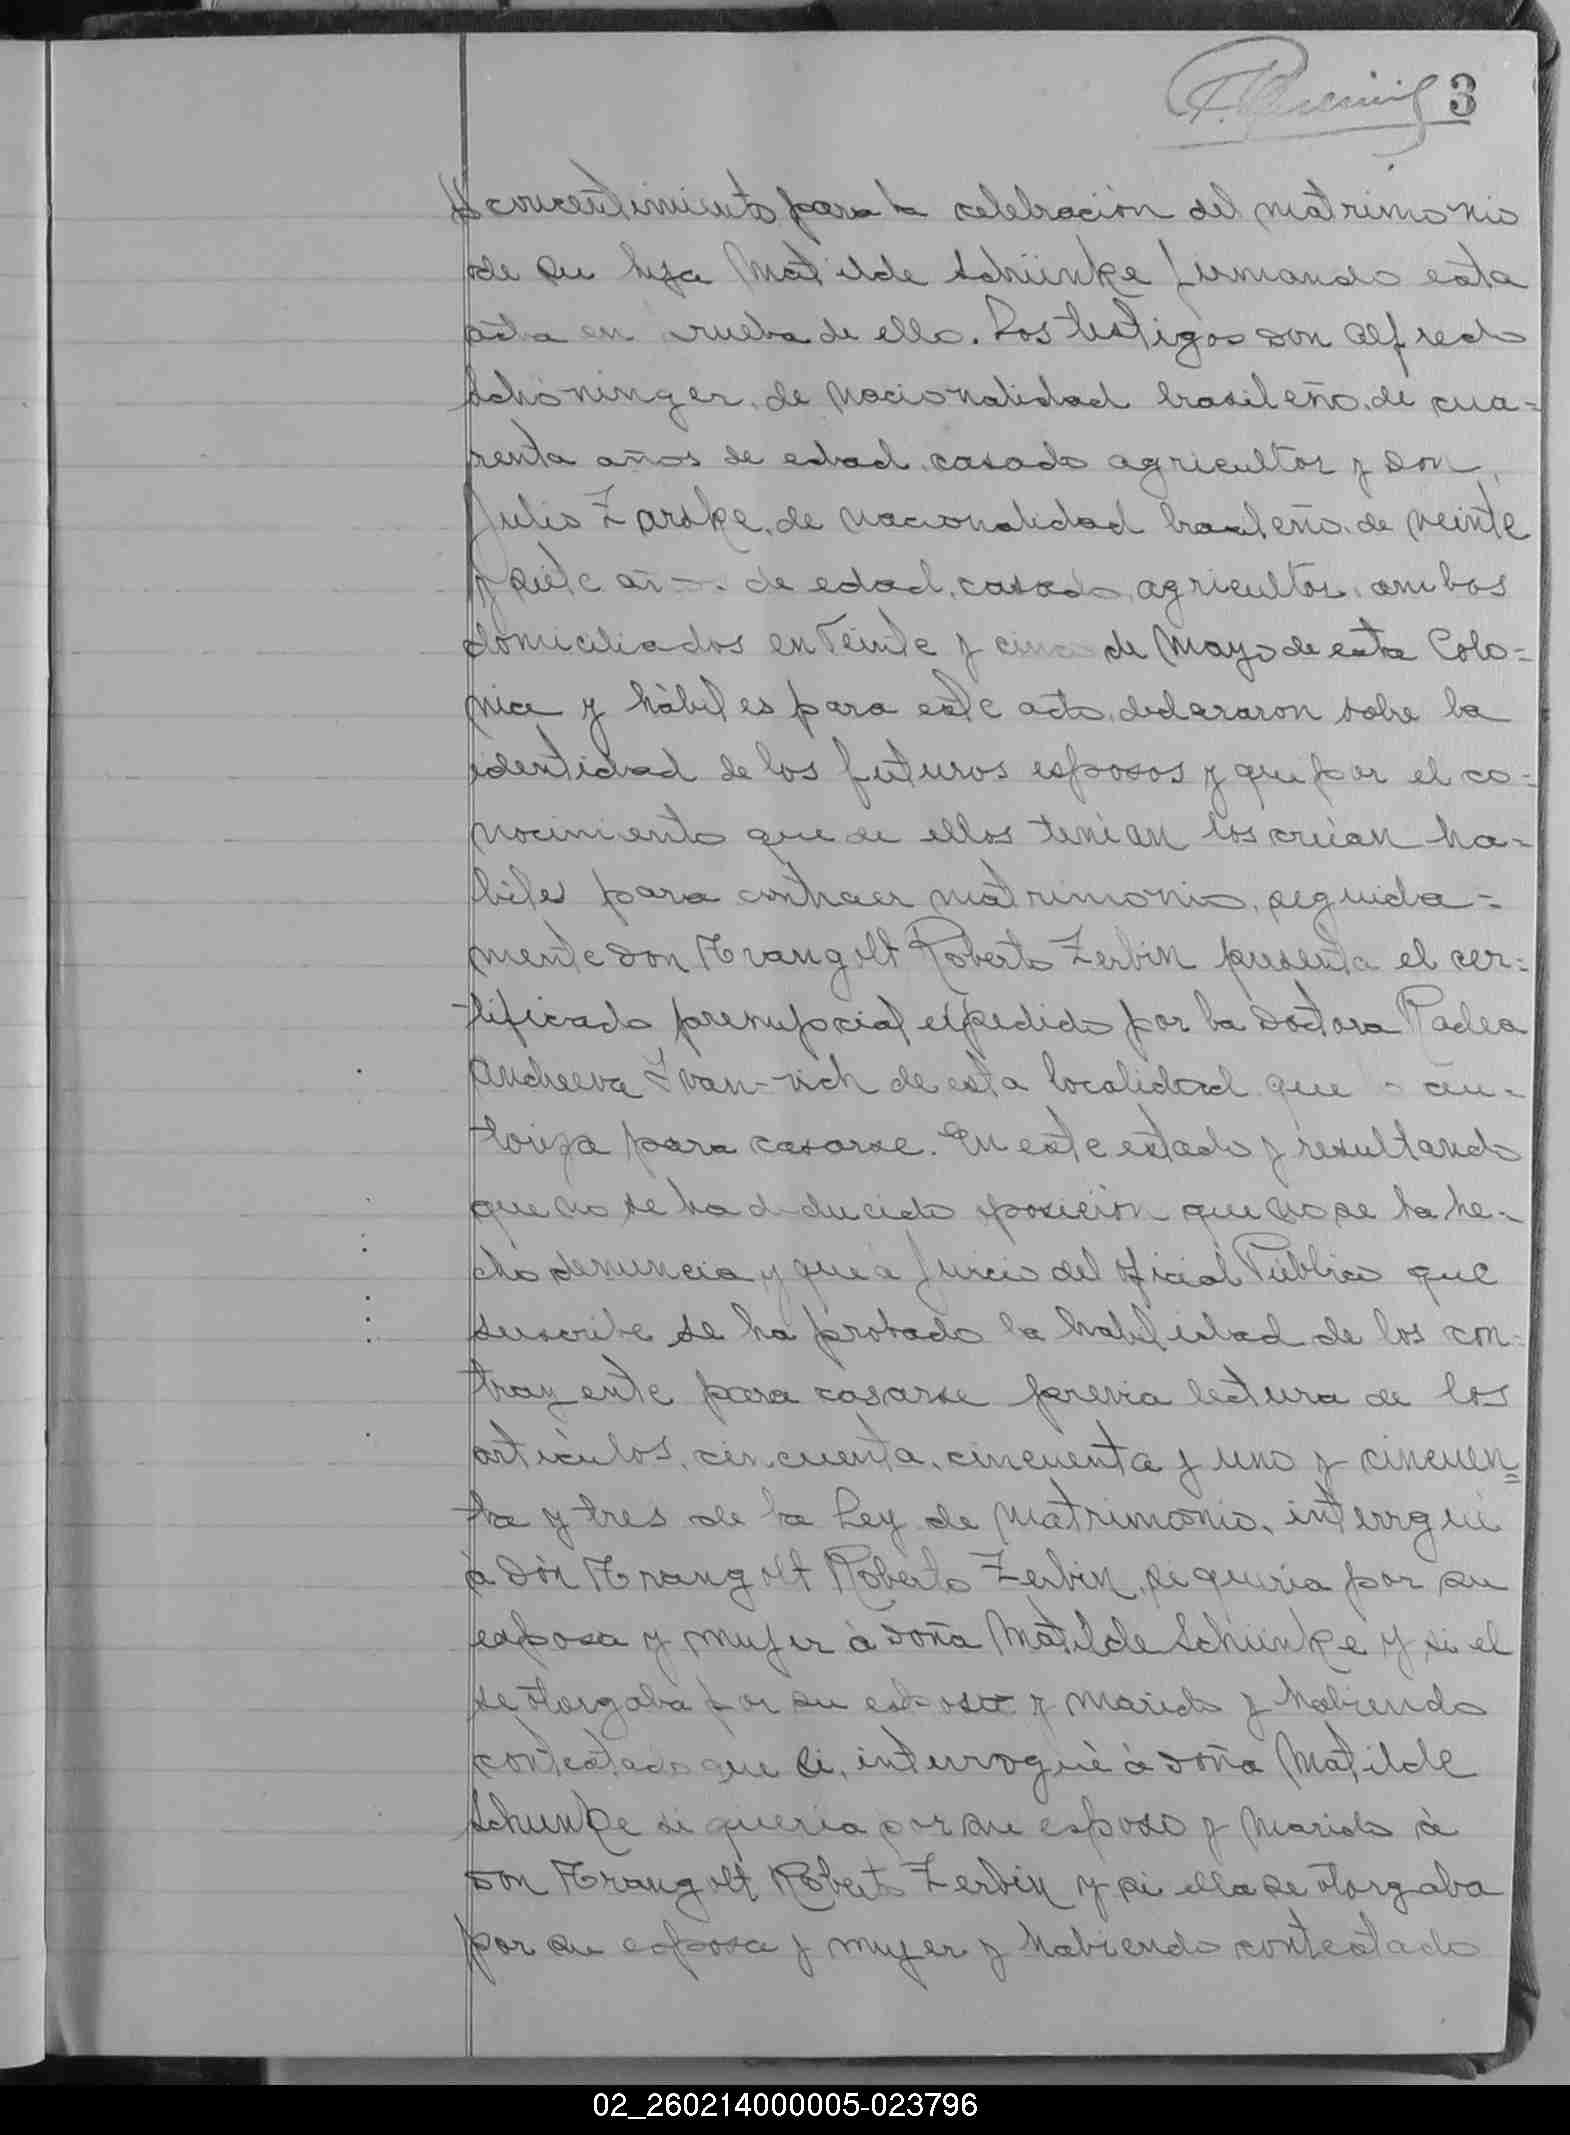 3
concentimiento para la celebración del matrimonio
de su hija Matilde Schünke firmando esta
acta en prueba de ello. Los testigos don Alfredo
Schöninger, de nacionalidad brasileño, de cua=
renta años de edad, casado agricultor y don
Julio Zarske, de nacionalidad brasileño, de veinte
y siete años de edad, casado, agricultor, ambos
domiciliados en Veinte y cinco de Mayo de esta Colo=
nia y hábiles para este acto, declararon sobre la
identidad de los futuros esposos y que por el co=
nocimiento que de ellos tenian los creían ha=
biles para contraer matrimonio, seguida=
mente don Traugolt Roberto Zerbin presenta el cer=
tificado prenupcial expedido por la Doctora Radea
Andreeva Ivan-vich de esta localidad que au=
toriza para casarse. En este estado y resultando
que no se ha deducido oposición que no se ha he-
cho denuncia y que a juicio del Oficial Público que
suscribe se ha probado la habilidad de los con-
trayente para casarse previa lectura de los
artículos, cincuenta, cincuenta y uno y cincuen=
ta y tres de la Ley de Matrimonio, interrgué
à don Traugolt Roberto Zerbin, si quería por su
esposa y mujer à doña Matilde Schünke y si el
se otorgaba por su esposo y marido y habiendo
contestado que si, interrogué à doña Matilde
Schunke si quería por su esposo y marido à
don Traugolt Roberto Zerbin y si ella se otorgaba
por su esposa y mujer y habiendo contestado
02_260214000005-023796